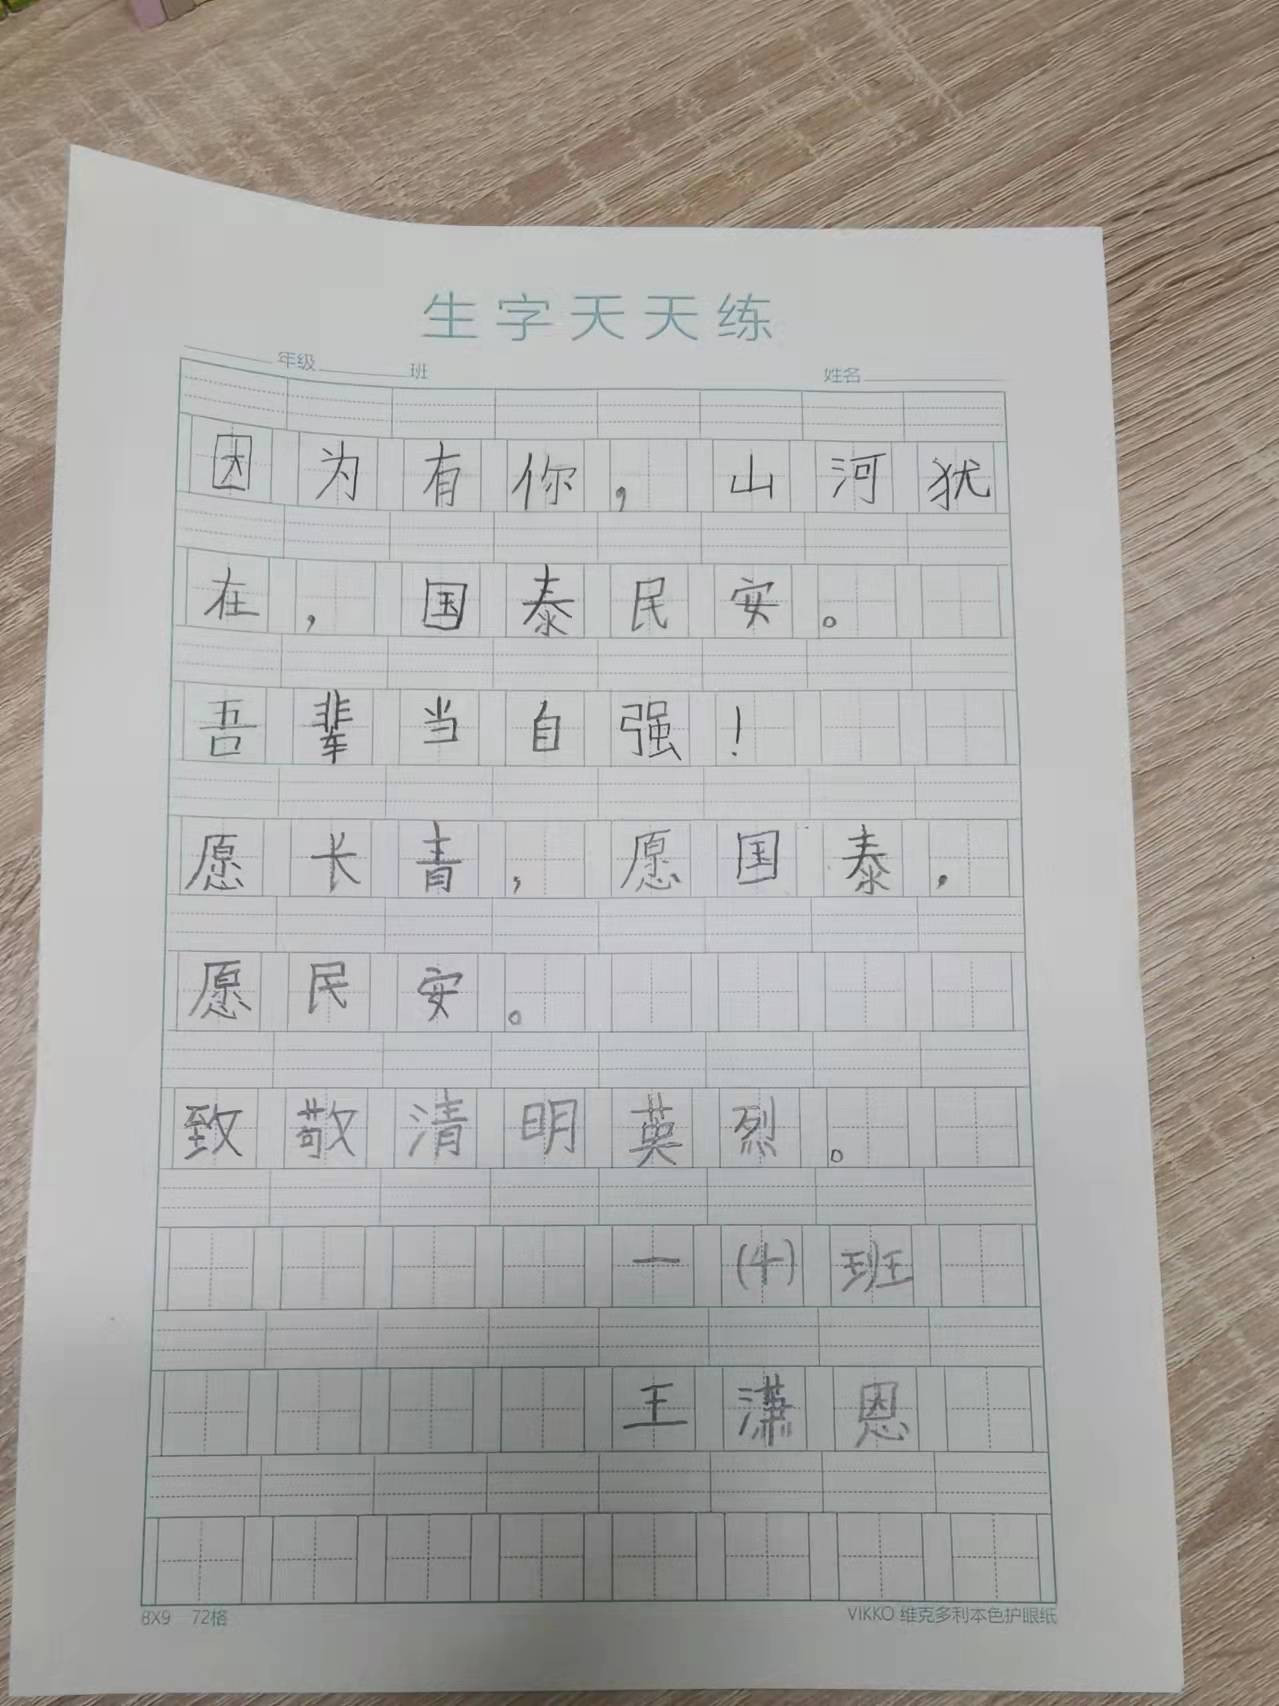 生字天天练
年级 班 姓名
因为有你，山河犹
在，国泰民安。
吾辈当自强！
愿长青，愿国泰，
愿民安。
致敬清明英烈。
一(4)班
王潇恩
8X9 72格 VIKKO 维克多利本色护眼纸